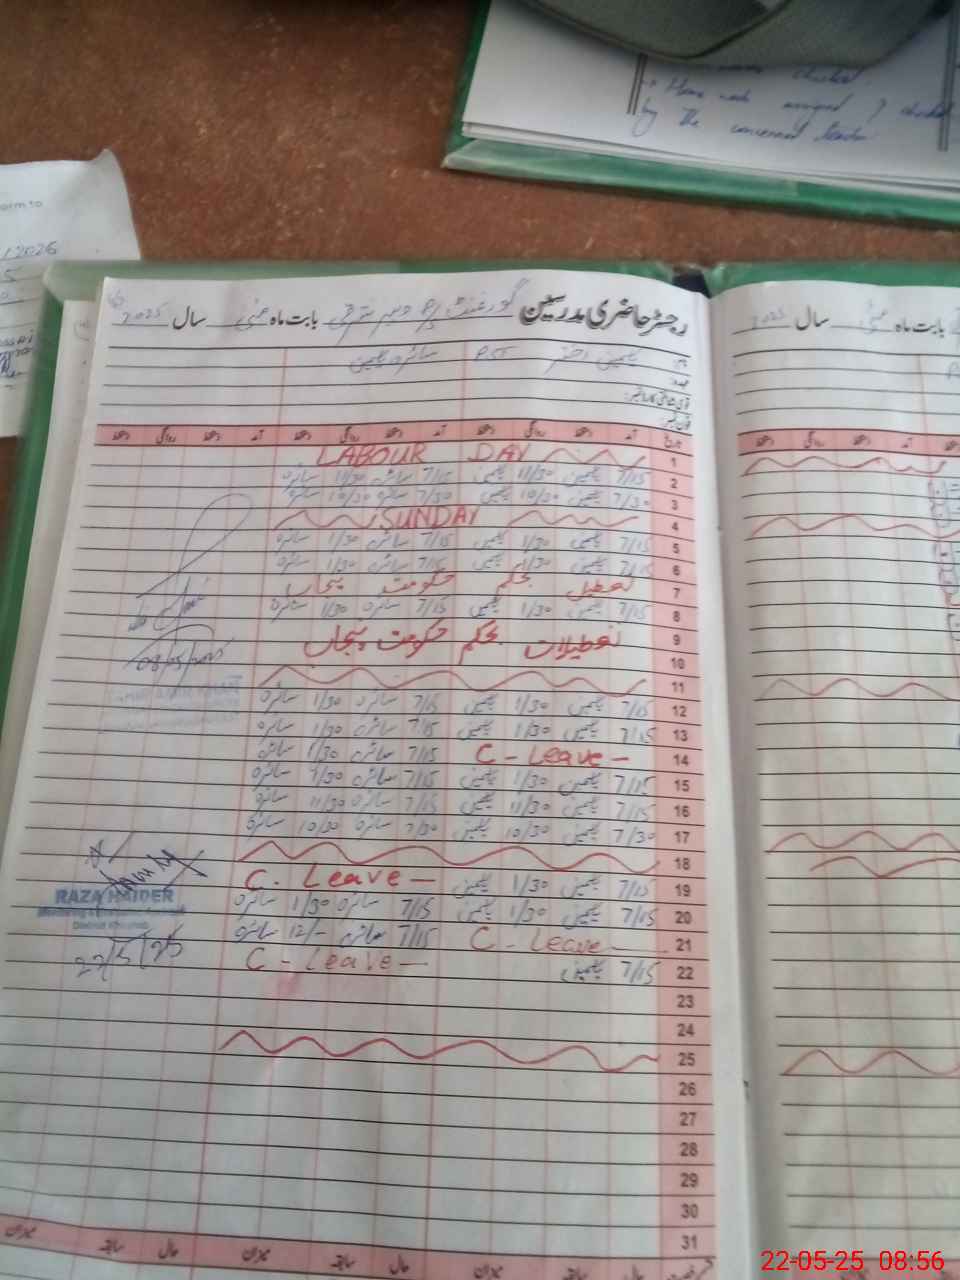 checked.
Home work assigned & checked
by the concerned teacher
رجسٹر حاضری مدرسین گورنمنٹ بابت ماہ مئی سال 2025
نام: یاسمین اختر PST سائرہ یاسمین
عہدہ:
قومی شناختی کارڈ نمبر:
فون نمبر:
تاریخ آمد دستخط روانگی دستخط آمد دستخط روانگی دستخط آمد دستخط روانگی دستخط
1 LABOUR DAY
2 7/15 یاسمین 11/30 یاسمین 7/15 سائرہ 11/30 سائرہ
3 7/30 یاسمین 10/30 یاسمین 7/30 سائرہ 10/30 سائرہ
4 SUNDAY
5 7/15 یاسمین 1/30 یاسمین 7/15 سائرہ 1/30 سائرہ
6 7/15 یاسمین 1/30 یاسمین 7/15 سائرہ 1/30 سائرہ
7 تعطیل بحکم حکومت پنجاب
8 7/15 یاسمین 1/30 یاسمین 7/15 سائرہ 1/30 سائرہ
9 تعطیلات بحکم حکومت پنجاب
10
08/05/2025
11
12 7/15 یاسمین 1/30 یاسمین 7/15 سائرہ 1/30 سائرہ
13 7/15 یاسمین 1/30 یاسمین 7/15 سائرہ 1/30 سائرہ
14 C - Leave - 7/15 سائرہ 1/30 سائرہ
15 7/15 یاسمین 1/30 یاسمین 7/15 سائرہ 1/30 سائرہ
16 7/15 یاسمین 11/30 یاسمین 7/15 سائرہ 11/30 سائرہ
17 7/30 یاسمین 10/30 یاسمین 7/30 سائرہ 10/30 سائرہ
18
19 7/15 یاسمین 1/30 یاسمین C. Leave -
20 7/15 یاسمین 1/30 یاسمین 7/15 سائرہ 1/30 سائرہ
21 C - Leave - 7/15 سائرہ 12/- سائرہ
22 7/15 یاسمین C - Leave -
RAZA HAIDER
22/5/25
23
24
25
26
27
28
29
30
31
حال سابقہ میزان حال سابقہ میزان حال سابقہ میزان
بابت ماہ مئی سال 2025
22-05-25 08:56